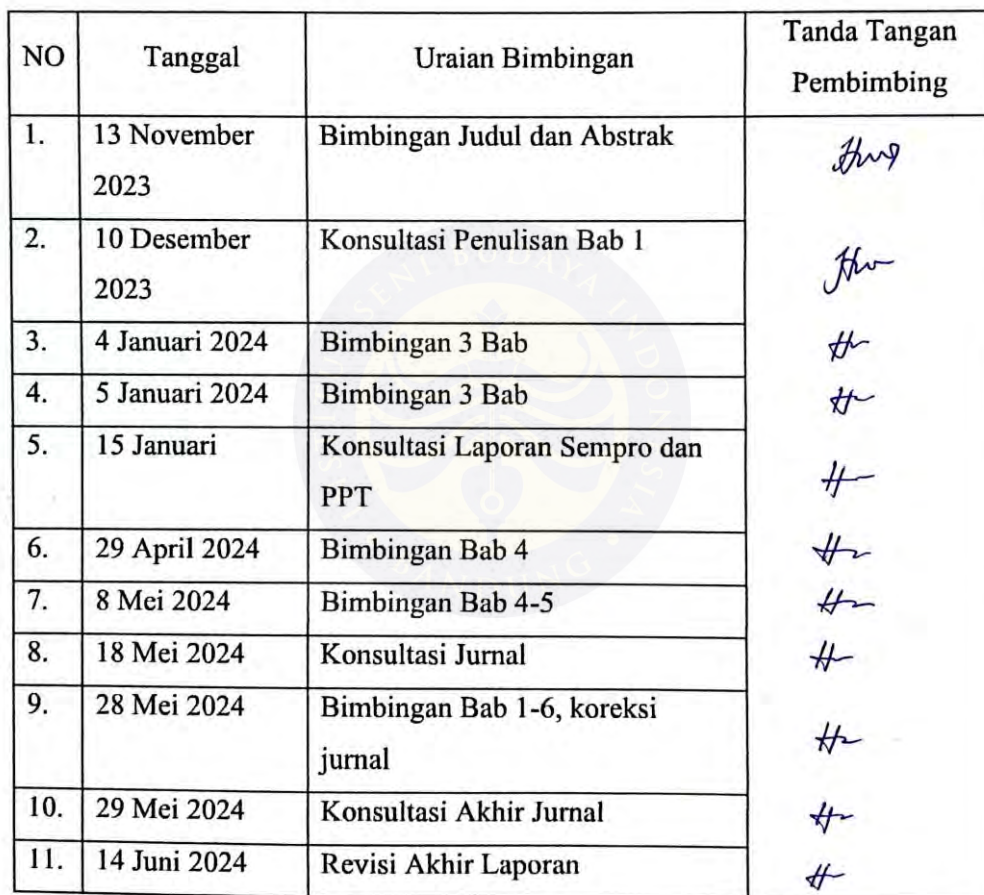 NO Tanggal Uraian Bimbingan Tanda Tangan
Pembimbing
1. 13 November Bimbingan Judul dan Abstrak
2023
2. 10 Desember Konsultasi Penulisan Bab 1
2023
3. 4 Januari 2024 Bimbingan 3 Bab
4. 5 Januari 2024 Bimbingan 3 Bab
5. 15 Januari Konsultasi Laporan Sempro dan
PPT
6. 29 April 2024 Bimbingan Bab 4
7. 8 Mei 2024 Bimbingan Bab 4-5
8. 18 Mei 2024 Konsultasi Jurnal
9. 28 Mei 2024 Bimbingan Bab 1-6, koreksi
jurnal
10. 29 Mei 2024 Konsultasi Akhir Jurnal
11. 14 Juni 2024 Revisi Akhir Laporan
SENI BUDAYA INDONESIA
BANDUNG